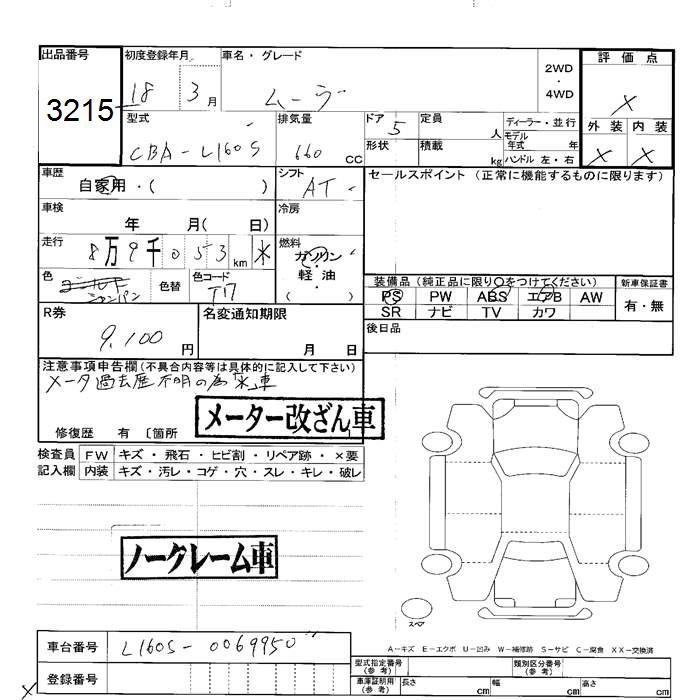 出品番号
3215
初度登録年月
18 3月
車名・グレード
ムーヴ
2WD
・
4WD
評価点
X
外装 内装
X X
型式
CBA-L160S
排気量
660 CC
ドア 5
形状
定員 人
積載 kg
ディーラー・並行
モデル年式 年
ハンドル 左・右
車歴
自家用・( )
シフト
AT
セールスポイント(正常に機能するものに限ります)
車検
年 月( 日)
冷房
走行
8万9千053km ※
燃料
ガソリン
・
軽油
( )
色
シャンパン
色替
色コード
T17
装備品(純正品に限り〇をつけてください)
PS PW ABS エアB AW
SR ナビ TV カワ
新車保証書
有・無
R券
9,100円
名変通知期限
月 日
後日品
注意事項申告欄(不具合内容等は具体的に記入して下さい)
メータ過去歴不明の為「※」車
メーター改ざん車
修復歴 有〔箇所
検査員記入欄
FW キズ・飛石・ヒビ割・リペア跡・×要
内装 キズ・汚レ・コゲ・穴・スレ・キレ・破レ
ノークレーム車
スペア
A－キズ E－エクボ U－凹み W－補修跡 S－サビ C－腐食 XX－交換済
車台番号
L160S-0069950
登録番号
型式指定番号(参考)
類別区分番号(参考)
車庫証明用(参考)
長さ cm 幅 cm 高さ cm
X